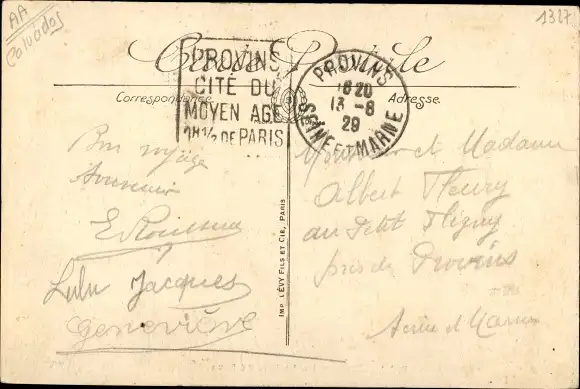 AA
Calvados
1327
Carte Postale
PROVINS
CITÉ DU
MOYEN AGE
1H1/2 DE PARIS
PROVINS
1820
13-8
29
SEINE ET MARNE
Correspondance
Adresse
Bon voyage
Souvenir
E Rousseau
Lulu Jacques
Geneviève
IMP. LÉVY FILS ET CIE, PARIS
Monsieur et Madame
Albert Fleury
au Petit Fligny
près de Provins
Seine et Marne